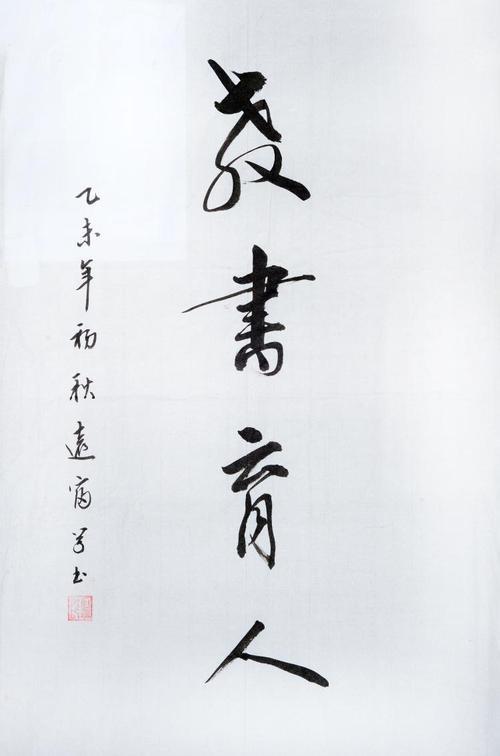 教書育人
乙未年初秋遠